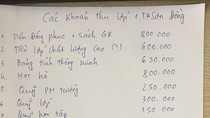 Các khoản thu lớp 1, TH Sơn Đồng
1. Tiền Đồng phục + Sách GK 800.000
2. Tiền lớp chất lượng cao (?) 600.000
3. Bảng tính thông minh 650.000
4. Học hè 800.000
5. Quỹ PH trường 250.000
6. Quỹ lớp 300.000
Quỹ học tập 150